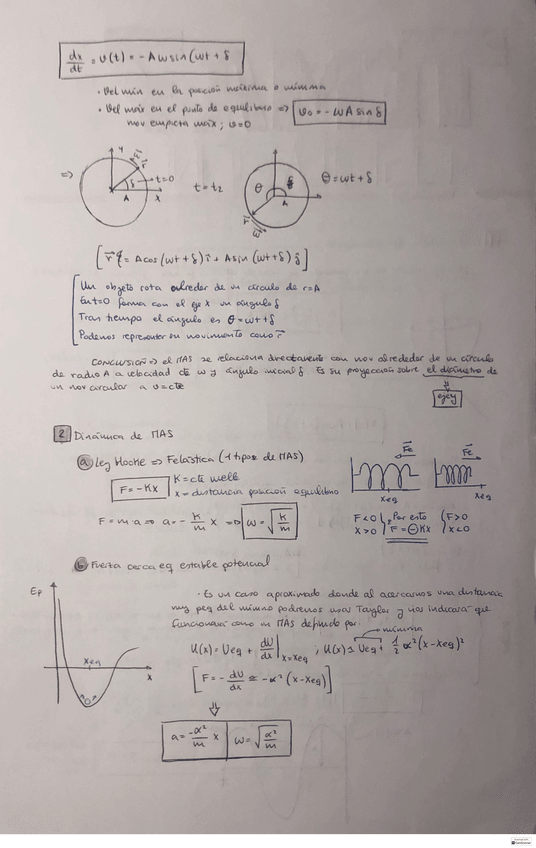 dx/dt = v(t) = -Aωsin(ωt + δ
• Vel mín en la posición máxima o mínima
• Vel máx en el punto de equilibrio => v₀ = -ωA sin δ
mov empieza máx ; v=0
=> y ω⃗ r⃗ δ t=0 A x t = t₂ θ δ A r⃗ ω⃗ θ = ωt + δ
[ r⃗ = A cos (ωt + δ) î + A sin (ωt + δ) ĵ ]
Un objeto rota alrededor de un círculo de r=A
En t=0 forma con el eje x un ángulo δ
Tras tiempo el ángulo es θ = ωt + δ
Podemos representar su movimiento como r⃗
CONCLUSIÓN => el MAS se relaciona directamente con mov alrededor de un círculo
de radio A a velocidad cte ω y ángulo inicial δ Es su proyección sobre el diámetro de
un mov circular a v=cte
⇓
eje y
2 Dinámica de MAS
a Ley Hooke => Felástica (1 tipo de MAS)
F = -Kx
K = cte muelle
x = distancia posición equilibrio
F = m·a => a = - K/m x => ω = √(K/m)
Fe Fe
xeq xeq
F<0 x>0 Por esto F = -Kx F>0 x<0
b Fuerza cerca eq estable potencial
Ep xeq x
• Es un caso aproximado donde al acercarnos una distancia
muy peq del mínimo podremos usar Taylor y nos indicará que
funcionará como un MAS definido por:
mínima
U(x) = Ueq + dU/dx |x=xeq ; U(x) ≃ Ueq + 1/2 α²(x-xeq)²
[ F = - dU/dx ≃ -α² (x-xeq) ]
⇓
a = -α²/m x ω = √(α²/m)